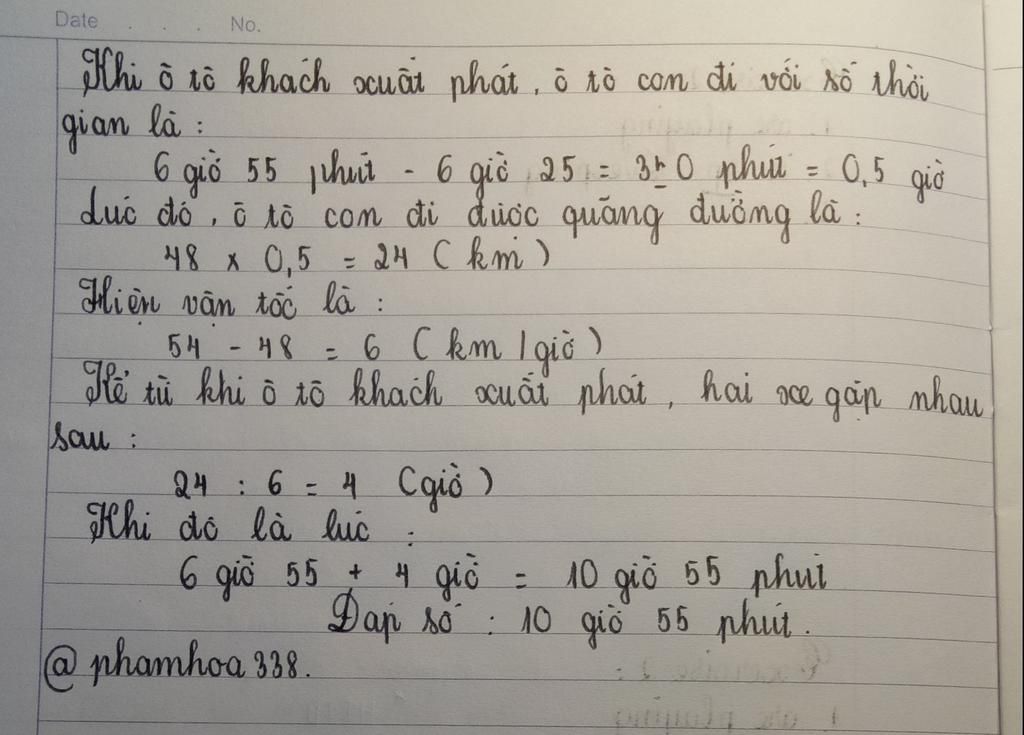 Date . . . No.
Khi ô tô khách xuất phát, ô tô con đi với số thời
gian là :
6 giờ 55 phút - 6 giờ 25 = 30 phút = 0,5 giờ
Lúc đó, ô tô con đi được quãng đường là :
48 x 0,5 = 24 ( km )
Hiệu vận tốc là :
54 - 48 = 6 ( km / giờ )
Kể từ khi ô tô khách xuất phát, hai xe gặp nhau
sau :
24 : 6 = 4 (giờ )
Khi đó là lúc :
6 giờ 55 + 4 giờ = 10 giờ 55 phút
Đáp số : 10 giờ 55 phút.
@phamhoa338.